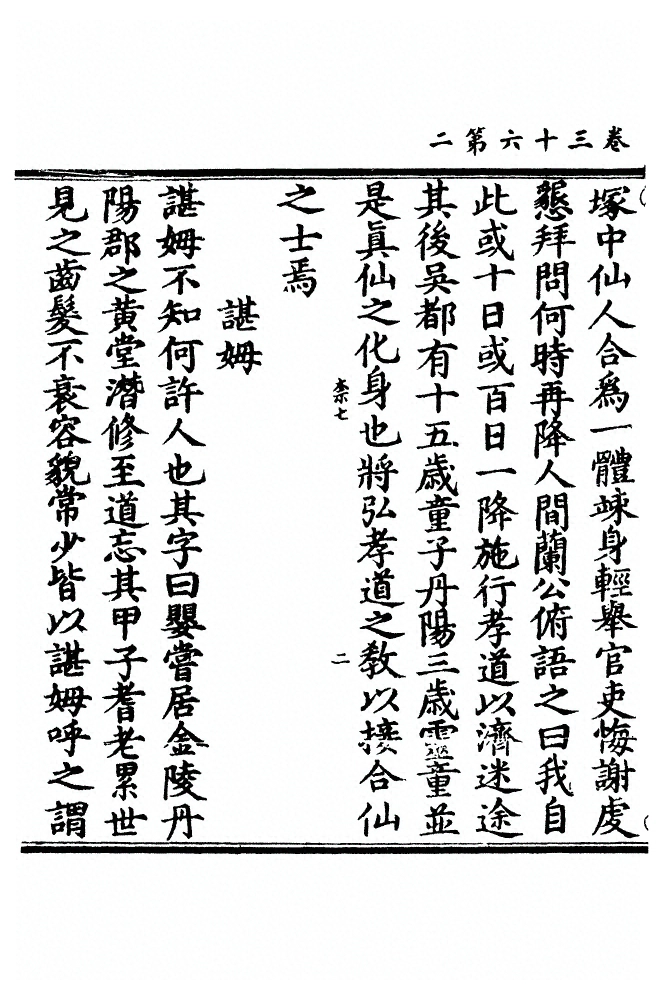 卷三十六第二
塚中仙人合爲一體竦身輕舉官吏悔謝虔
懇拜問何時再降人間蘭公俯語之曰我自
此或十日或百日一降施行孝道以濟迷途
其後吳都有十五歲童子丹陽三歲靈童並
是眞仙之化身也將弘孝道之敎以接合仙
柰七
二
之士焉
諶姆
諶姆不知何許人也其字曰嬰嘗居金陵丹
陽郡之黃堂潛修至道忘其甲子耆老累世
見之齒髮不衰容貌常少皆以諶姆呼之謂